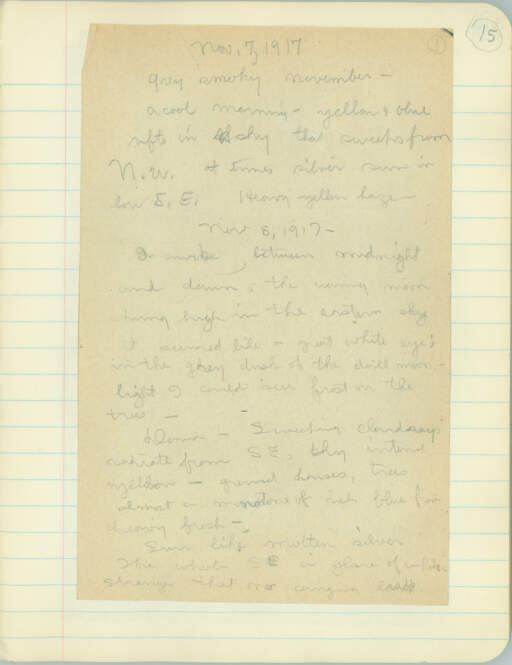 15
1
Nov. 7, 1917
grey smoky November —
a cool morning — yellow & blue
rifts in sky that sweeps from
N.W. At times silver sun in
low S.E. Heavy yellow haze —
Nov 8, 1917 —
I awoke between midnight
and dawn, the waning moon
hung high in the eastern sky
it seemed like a great white eye
in the grey dusk of the dull moon-
light I could see frost on the
trees —
Dawn — Sweeping cloud rays
radiate from SE, sky intense
yellow — ground houses, trees
almost a monotone of dark blue
heavy fresh —
Sun like molten silver
The whole SE a glare of white
strange that no